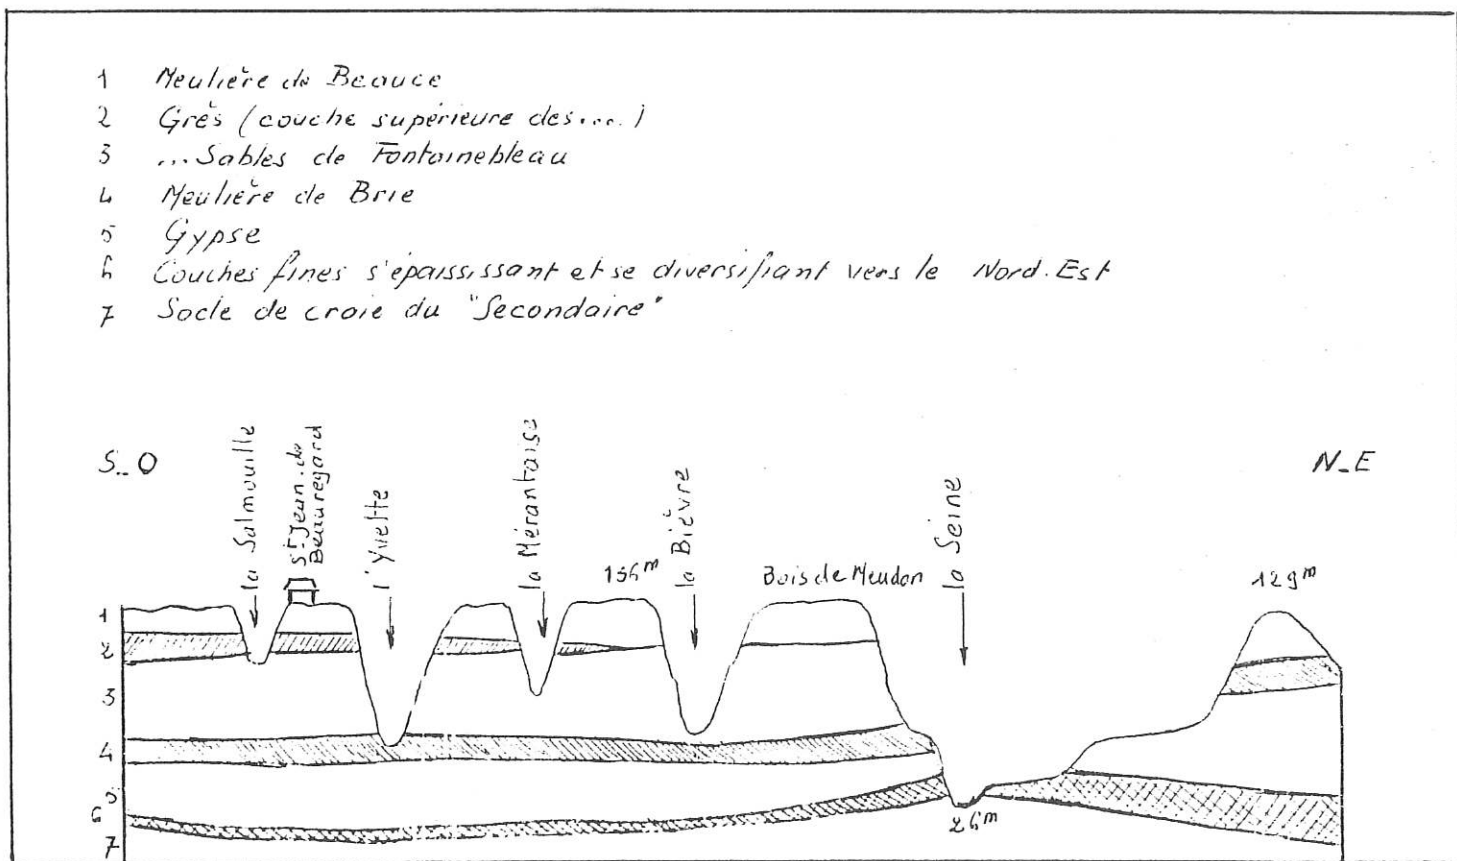 1 Meulière de Beauce
2 Grès (couche supérieure des....)
3 ...Sables de Fontainebleau
4 Meulière de Brie
5 Gypse
6 Couches fines s'épaississant et se diversifiant vers le Nord.Est
7 Socle de craie du "Secondaire"
S_O
la Salmouille
St Jean.de
Beauregard
l'Yvette
la Mérantaise
156m
la Bièvre
Bois de Meudon
la Seine
129m
N_E
1
2
3
4
5
6
7
26m